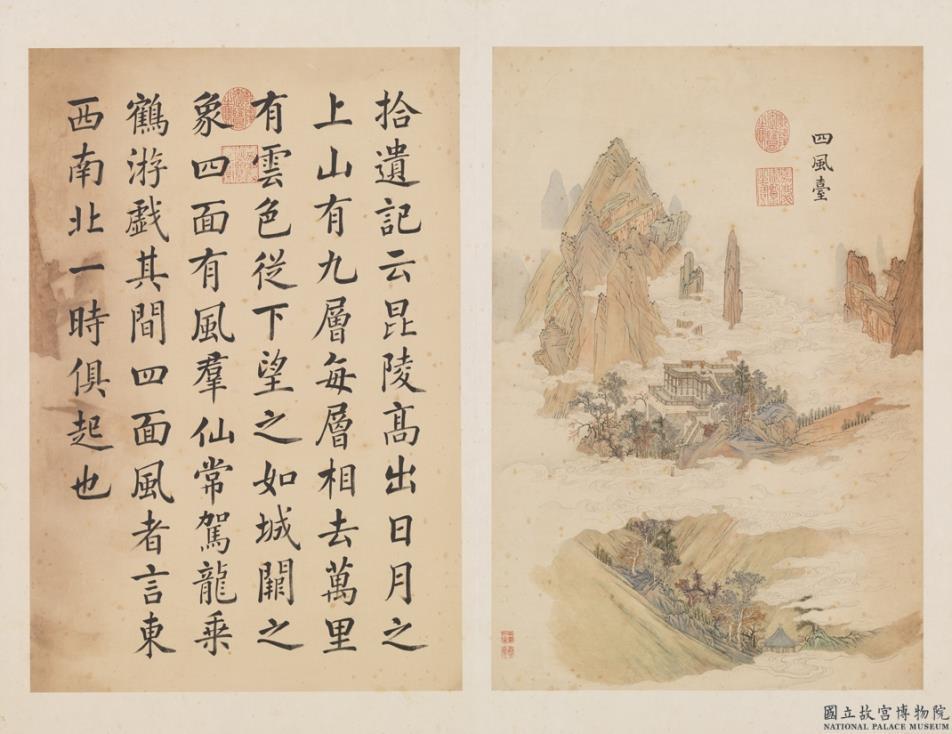 四風臺
拾遺記云昆陵高出日月之
上山有九層每層相去萬里
有雲色從下望之如城闕之
象四面有風羣仙常駕龍乘
鶴游戲其間四面風者言東
西南北一時俱起也
國立故宮博物院
NATIONAL PALACE MUSEUM